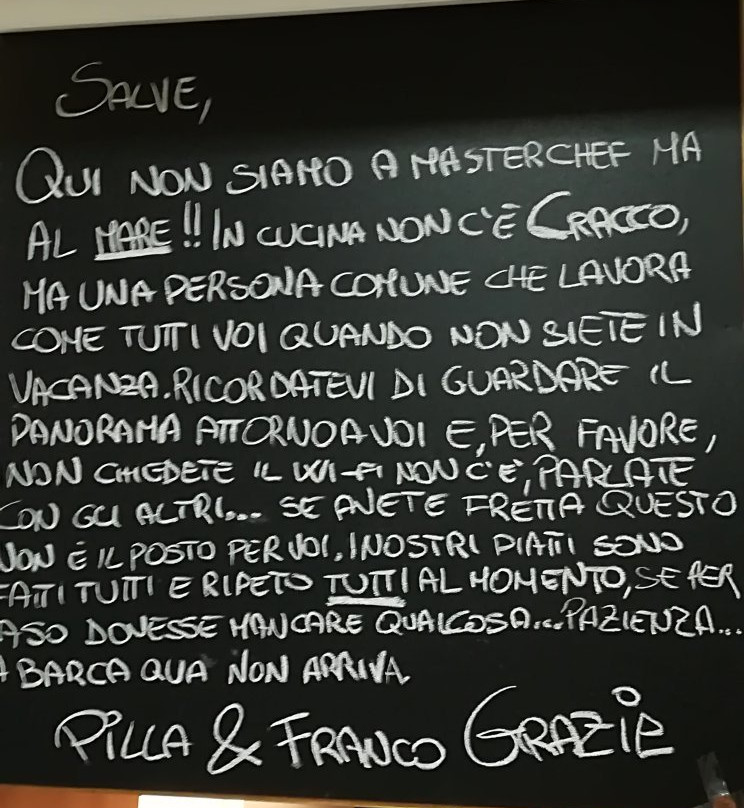 SALVE,
QUI NON SIAMO A MASTERCHEF MA
AL MARE!! IN CUCINA NON C'È CRACCO,
MA UNA PERSONA COMUNE CHE LAVORA
COME TUTTI VOI QUANDO NON SIETE IN
VACANZA. RICORDATEVI DI GUARDARE IL
PANORAMA ATTORNO A VOI E, PER FAVORE,
NON CHIEDETE IL WI-FI NON C'È, PARLATE
CON GLI ALTRI... SE AVETE FRETTA QUESTO
NON È IL POSTO PER VOI. I NOSTRI PIATTI SONO
FATTI TUTTI E RIPETO TUTTI AL MOMENTO, SE PER
ASO DOVESSE MANCARE QUALCOSA... PAZIENZA...
A BARCA QUA NON ARRIVA.
PILLA & FRANCO GRAZIE